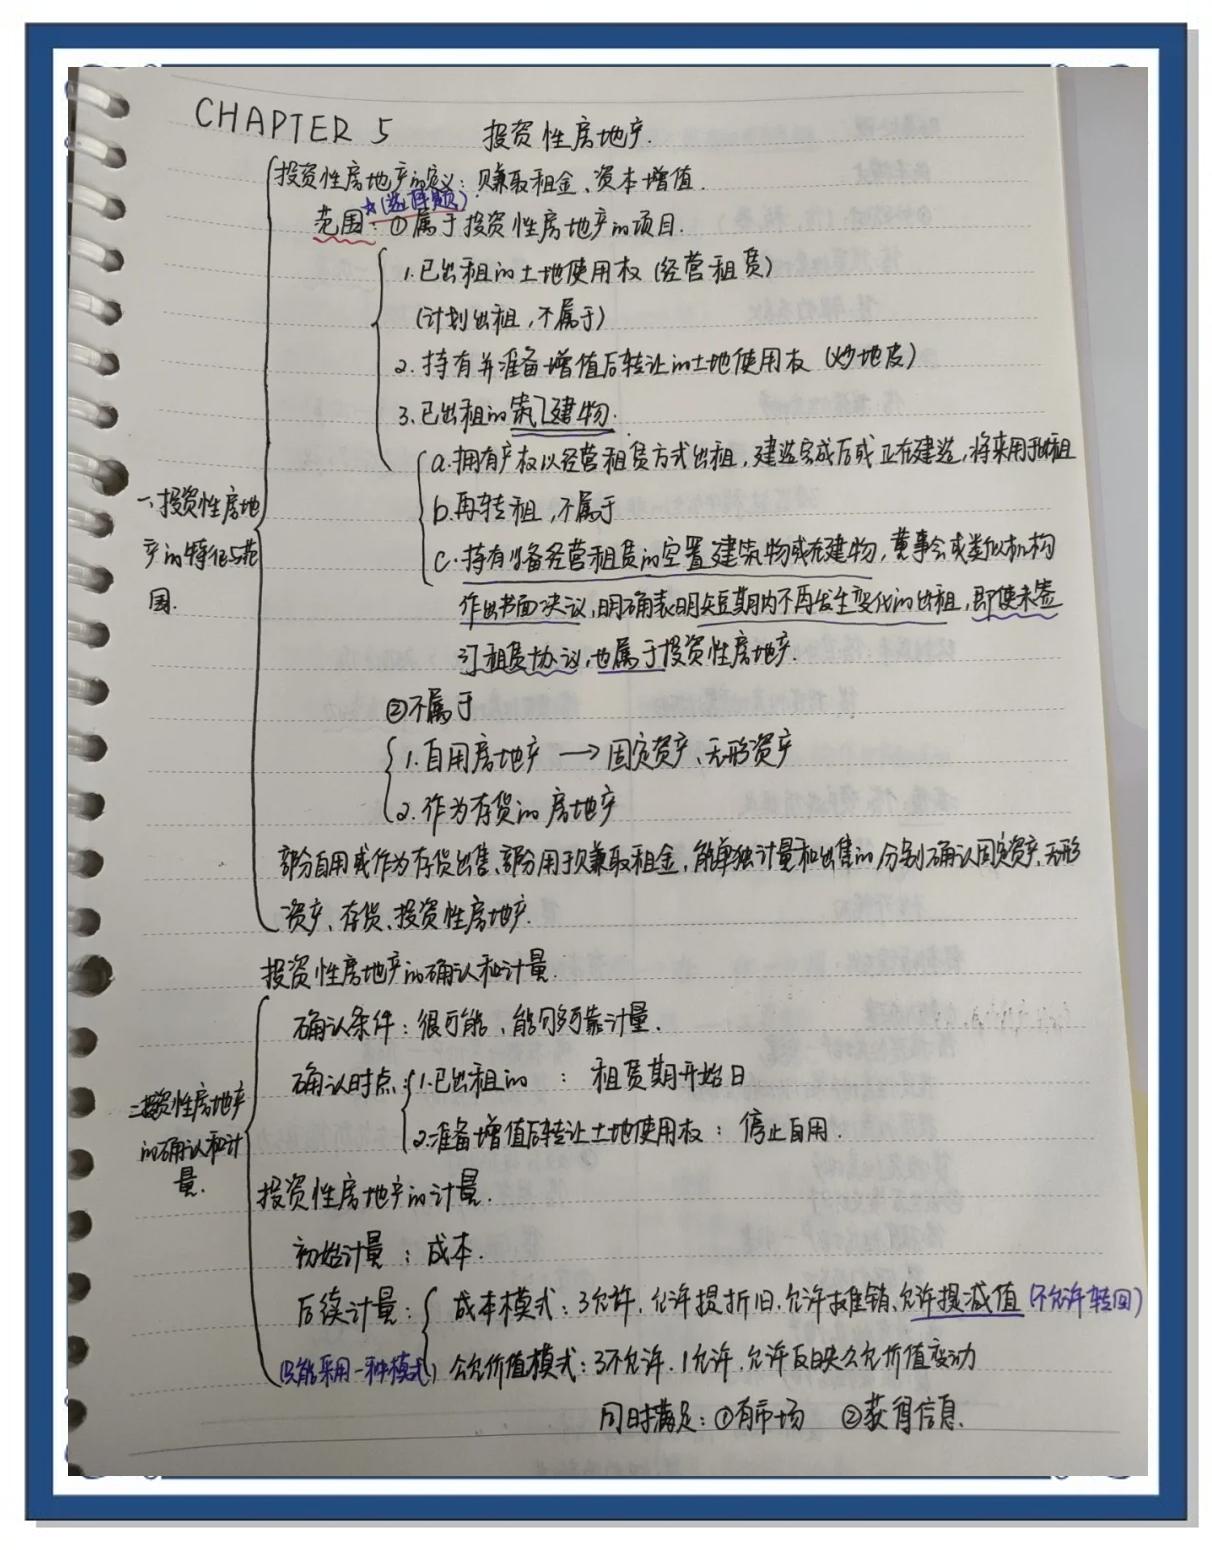 CHAPTER 5 投资性房地产.
投资性房地产的定义: 赚取租金、资本增值.
☆(选择题)
范围: ①属于投资性房地产的项目.
1.已出租的土地使用权 (经营租赁)
(计划出租,不属于)
2.持有并准备增值后转让的土地使用权 (炒地皮)
3.已出租的筑建物.
a.拥有产权以经营租赁方式出租,建造完成后或正在建造,将来用于出租
b.再转租,不属于
c.持有以备经营租赁的空置建筑物或在建物,董事会或类似机构
作出书面决议,明确表明短期内不再发生变化的出租,即使未签
订租赁协议,也属于投资性房地产.
一、投资性房地
产的特征与范
围.
②不属于
1.自用房地产 → 固定资产、无形资产
2.作为存货的房地产
部分自用或作为存货出售、部分用于赚取租金,能单独计量和出售的分别确认固定资产、无形
资产、存货、投资性房地产.
投资性房地产的确认和计量.
确认条件: 很可能、能够可靠计量.
确认时点: 1.已出租的 : 租赁期开始日
2.准备增值后转让土地使用权: 停止自用.
二、投资性房地产
的确认和计
量.
投资性房地产的计量.
初始计量: 成本.
后续计量: 成本模式: 3允许,允许提折旧、允许摊销、允许提减值 (不允许转回)
(只能采用一种模式) 公允价值模式: 3不允许,1允许,允许反映公允价值变动
同时满足: ①有市场 ②获得信息.